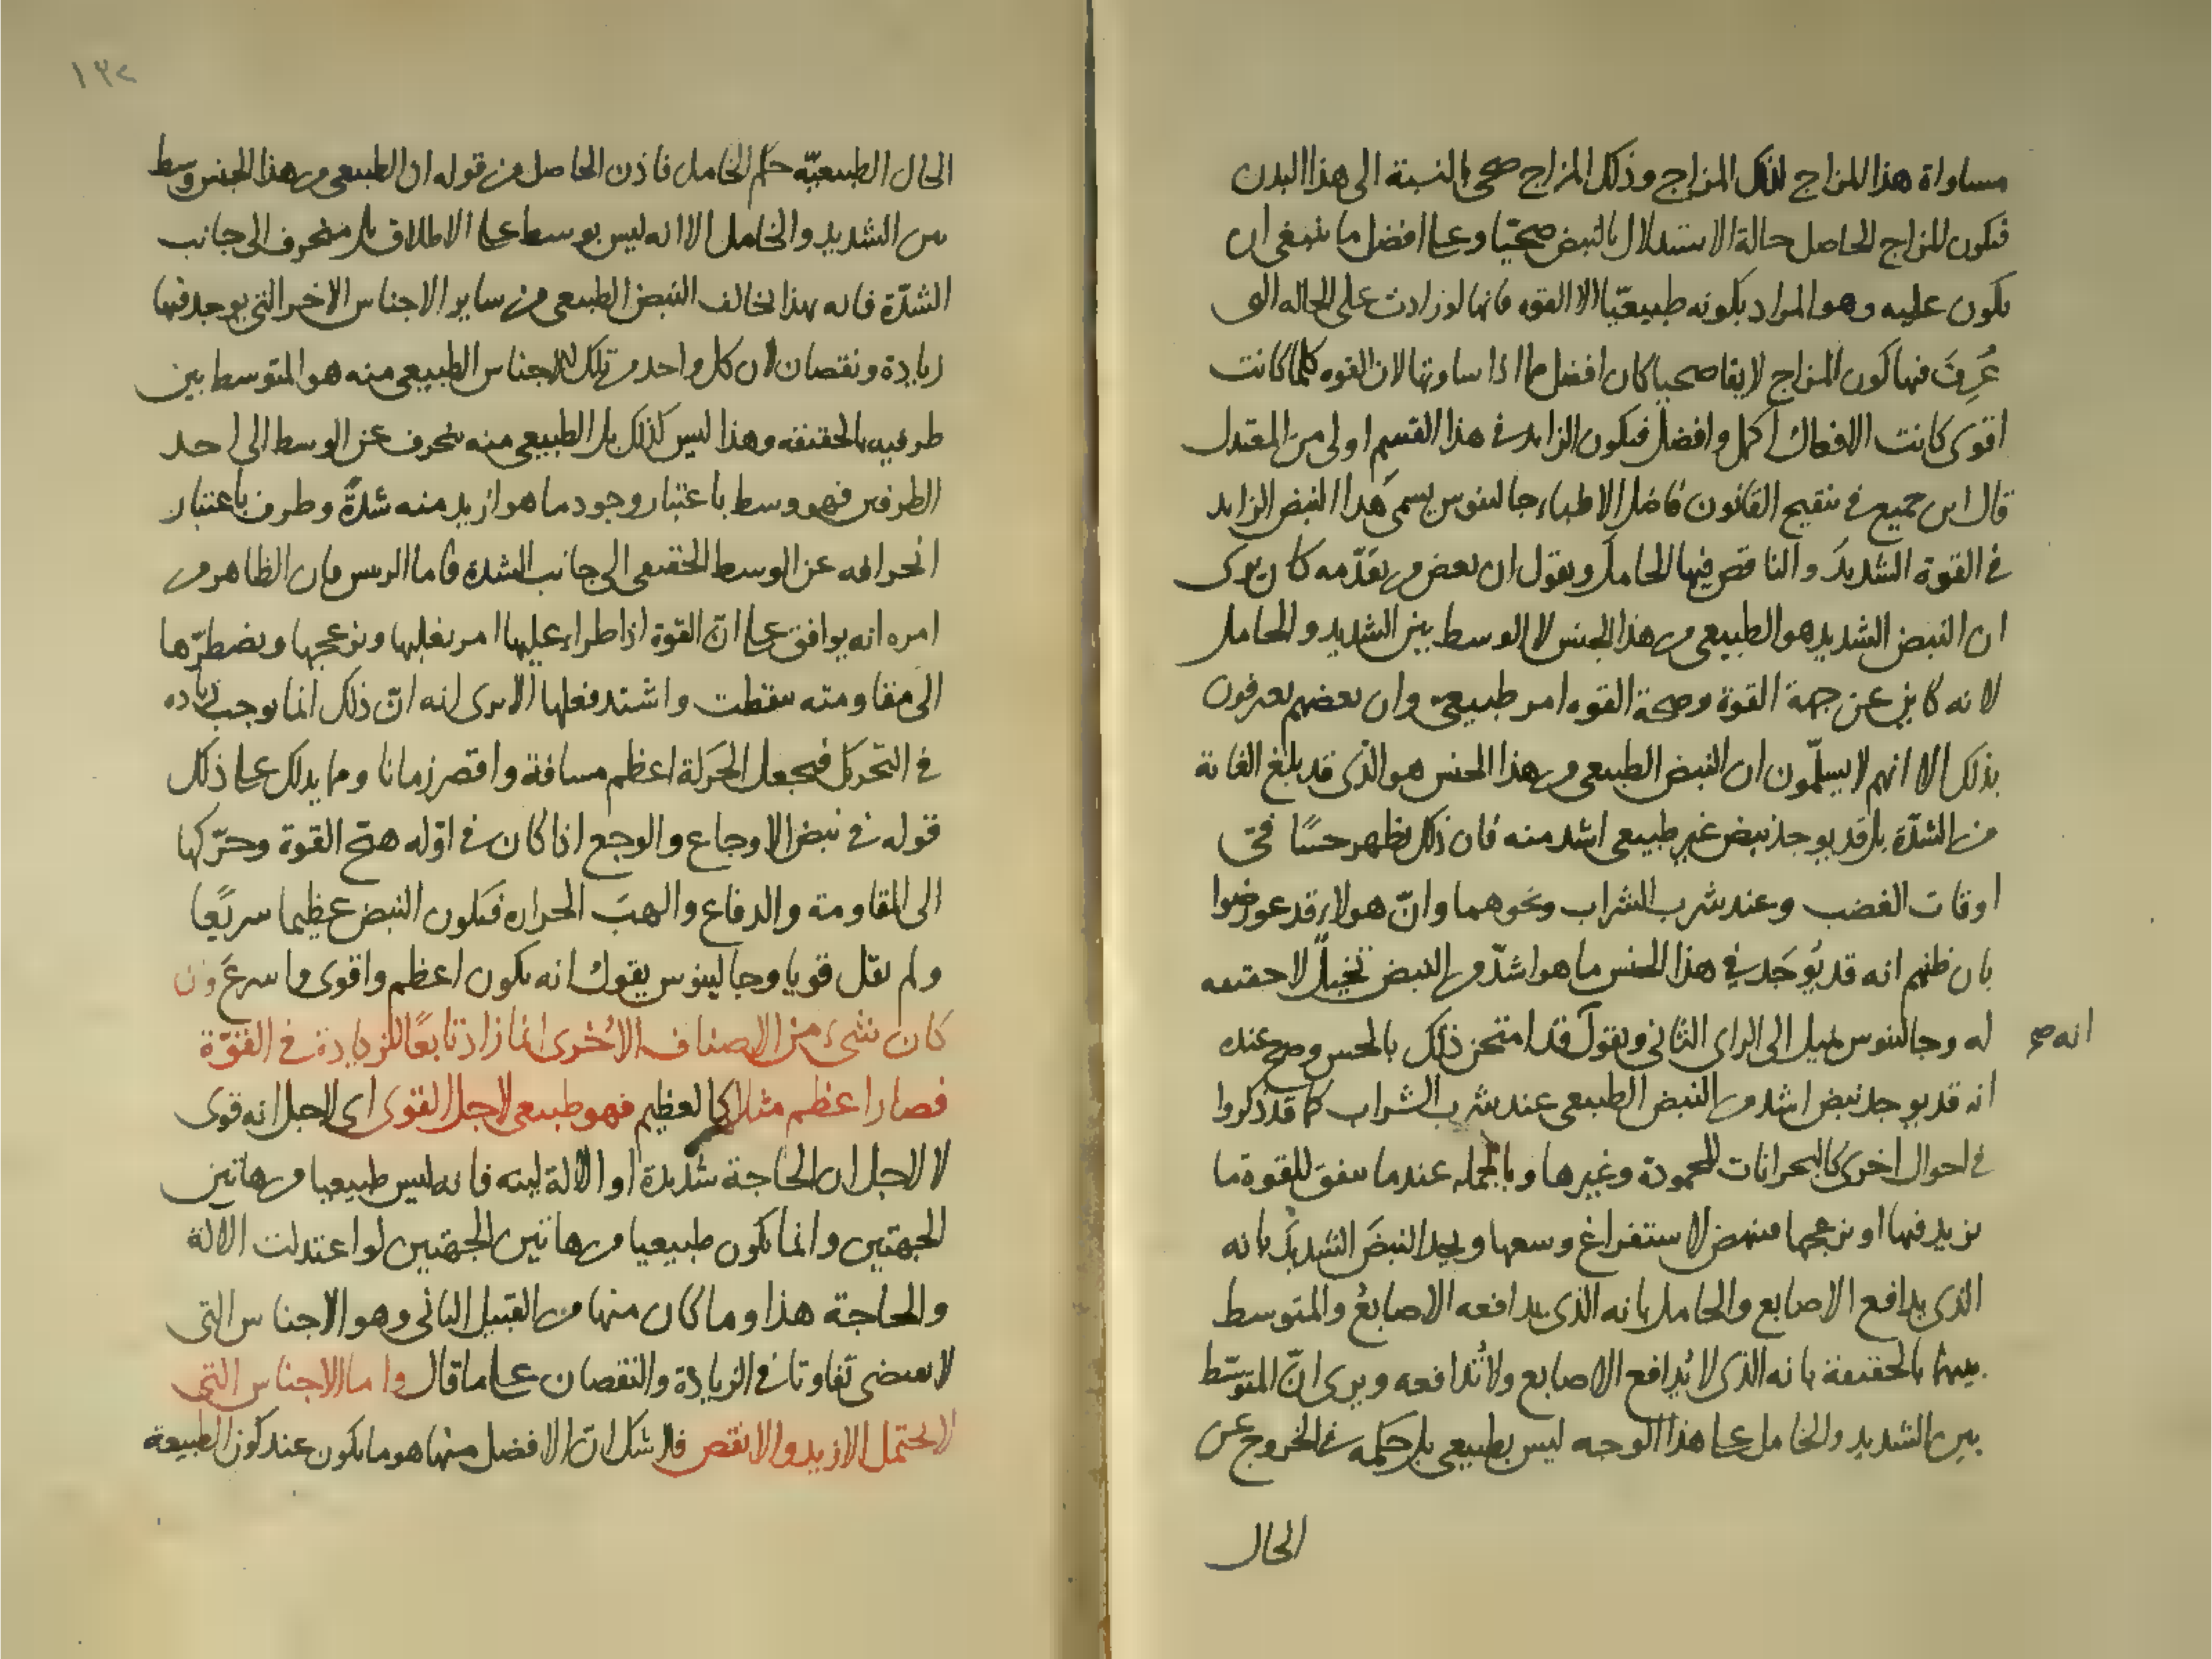 مساواة هذا المزاج لذلك المزاج وذلك المزاج صحى بالنسبة الى هذا البدن
فيكون المزاج الحاصل حالة الاستدلال بالنبض صحيّا وعلى افضل ما ينبغى ان
يكون عليه وهو المراد بكونه طبيعيّا الا القوه فانها لو زادت على الحاله التى
عُرِفَ فيها كون المزاج لايقا صحيا كان افضل مما اذا ساوتها لان القوه كلما كانت
اقوى كانت الافعال اكمل وافضل فيكون الزايد فى هذا القسم اولى من المعتدل
قال ابن جميع فى تنقيح القانون فاضل الاطباء جالينوس يسمى هذا النبض الزايد
فى القوة الشديدَ والناقص فيها الخاملَ ويقول ان بعض من تقدّمه كان يرى
ان النبض الشديد هو الطبيعى من هذا الجنس لا الوسط بين الشديد والخامل
لانه كاين عن جهة القوة وصحة القوه امر طبيعىّ وان بعضهم يعرفون
بذلك الا انهم لا يسلّمون ان النبض الطبيعى من هذا الجنس هو الذى قد بلغ الغاية
من الشدّة بل قد يوجد نبض غير طبيعى اشد منه فان ذلك يظهر حسًا فى
اوقات الغضب وعند شرب الشراب ونحوهما وانّ هولاء قد عورضوا
بان ظنهم انه قد يُوجَد فى هذا الجنس ما هو اشدّ من النبض تخيلٌ لا حقيقه
له وجالينوس يميل الى الراى الثانى ويقول قد امتحن ذلك بالحس وصح عنده
انه صح
انه قد يوجد نبض اشد من النبض الطبيعى عند شرب الشراب كما قد ذكروا
فى احوال اخرى كالبحرانات المحمودة وغيرها وبالجمله عندما يتفق للقوة ما
يزيد فيها او يزعجها فينهض لاستفراغ وسعها ويحد النبضَ الشديدَ بانه
الذى يدافع الاصابع والخامل بانه الذى يدافعه الاصابعُ والمتوسط
بينهما بالحقيقة بانه الذى لا يُدافع الاصابع ولا تُدافعه ويرى انّ المتوسّط
بين الشديد والخامل على هذا الوجه ليس بطبيعى بل حكمه فى الخروج عن
الحال
١٣٢
الحال الطبيعيّه حكم الخامل فاذن الحاصل من قوله ان الطبيعى من هذا الجنس وسط
بين الشديد والخامل الا انه ليس بوسط على الاطلاق بل منحرف الى جانب
الشدّة فانه بهذا يخالف النبض الطبيعى من ساير الاجناس الاخر التى يوجد فيها
زيادة ونقصان لان كل واحد من تلك الاجناس الطبيعى منه هو المتوسط بين
طرفيه بالحقيقه وهذا ليس كذلك بل الطبيعى منه ينحرف عن الوسط الى احد
الطرفين فهو وسط باعتبار وجود ما هو ازيد منه شدّةً وطرف باعتبار
انحرافه عن الوسط الحقيقى الى جانب الشدة فاما الريس فان الظاهر من
امره انه يوافق على انّ القوة اذا طراء عليها امر يغلبها ويزعجها ويضطرّها
الى مقاومته سقطت واشتد فعلها الا يرى انه انّ ذلك انما يوجب زياده
فى التحريك فيجعل الحركة اعظم مسافة واقصر زمانا ومما يدلك على ذلك
قوله فى نبض الاوجاع والوجع اذا كان فى اوّله هيّج القوة وحرّكها
الى المقاومة والدفاع والهبَ الحراره فيكون النبض عظيما سريعًا
ولم يقل قويا وجالينوس يقول انه يكون اعظم واقوى واسرعَ وان
كان شىء من الاصناف الاُخرى انما زاد تابعًا للزيادة فى القوّة
فصار اعظم مثلا كالعظيم فهو طبيعى لاجل القوى اى لاجل انه قوى
لا لاجل ان الحاجة شديدة او الالة لينه فانه ليس طبيعيا من هاتين
الجهتين وانما يكون طبيعيا من هاتين الجهتين لو اعتدلت الالة
والحاجة هذا وما كان منها من القبيل الثانى وهو الاجناس التى
لا يقتضى تفاوتا فى الزيادة والنقصان على ما قال واما الاجناس التى
لا يحتمل الازيد والانقص فلا شك انّ الافضل منها هو ما يكون عند كون الطبيعة